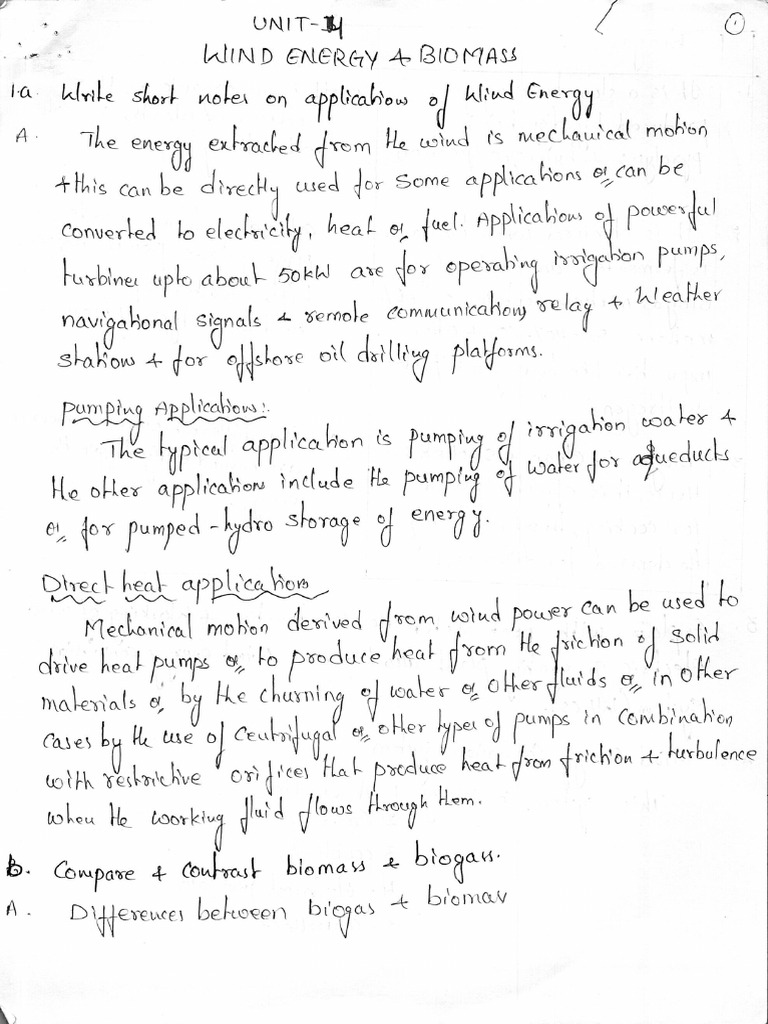 UNIT-4
①
WIND ENERGY & BIOMASS
1.a. Write short notes on applications of Wind Energy
A. The energy extracted from the wind is mechanical motion
& this can be directly used for some applications or can be
converted to electricity, heat or fuel. Applications of powerful
turbines upto about 50kW are for operating irrigation pumps,
navigational signals & remote communications, relay & Weather
stations & for offshore oil drilling platforms.
Pumping Applications:
The typical application is pumping of irrigation water &
the other applications include the pumping of water for aqueducts
or for pumped-hydro storage of energy.
Direct heat applications
Mechanical motion derived from wind power can be used to
drive heat pumps or to produce heat from the friction of solid
materials or by the churning of water or other fluids or in other
cases by the use of centrifugal or other types of pumps in combination
with restrictive orifices that produce heat from friction & turbulence
when the working fluid flows through them.
b. Compare & contrast biomass & biogass.
A. Differences between biogas & biomas